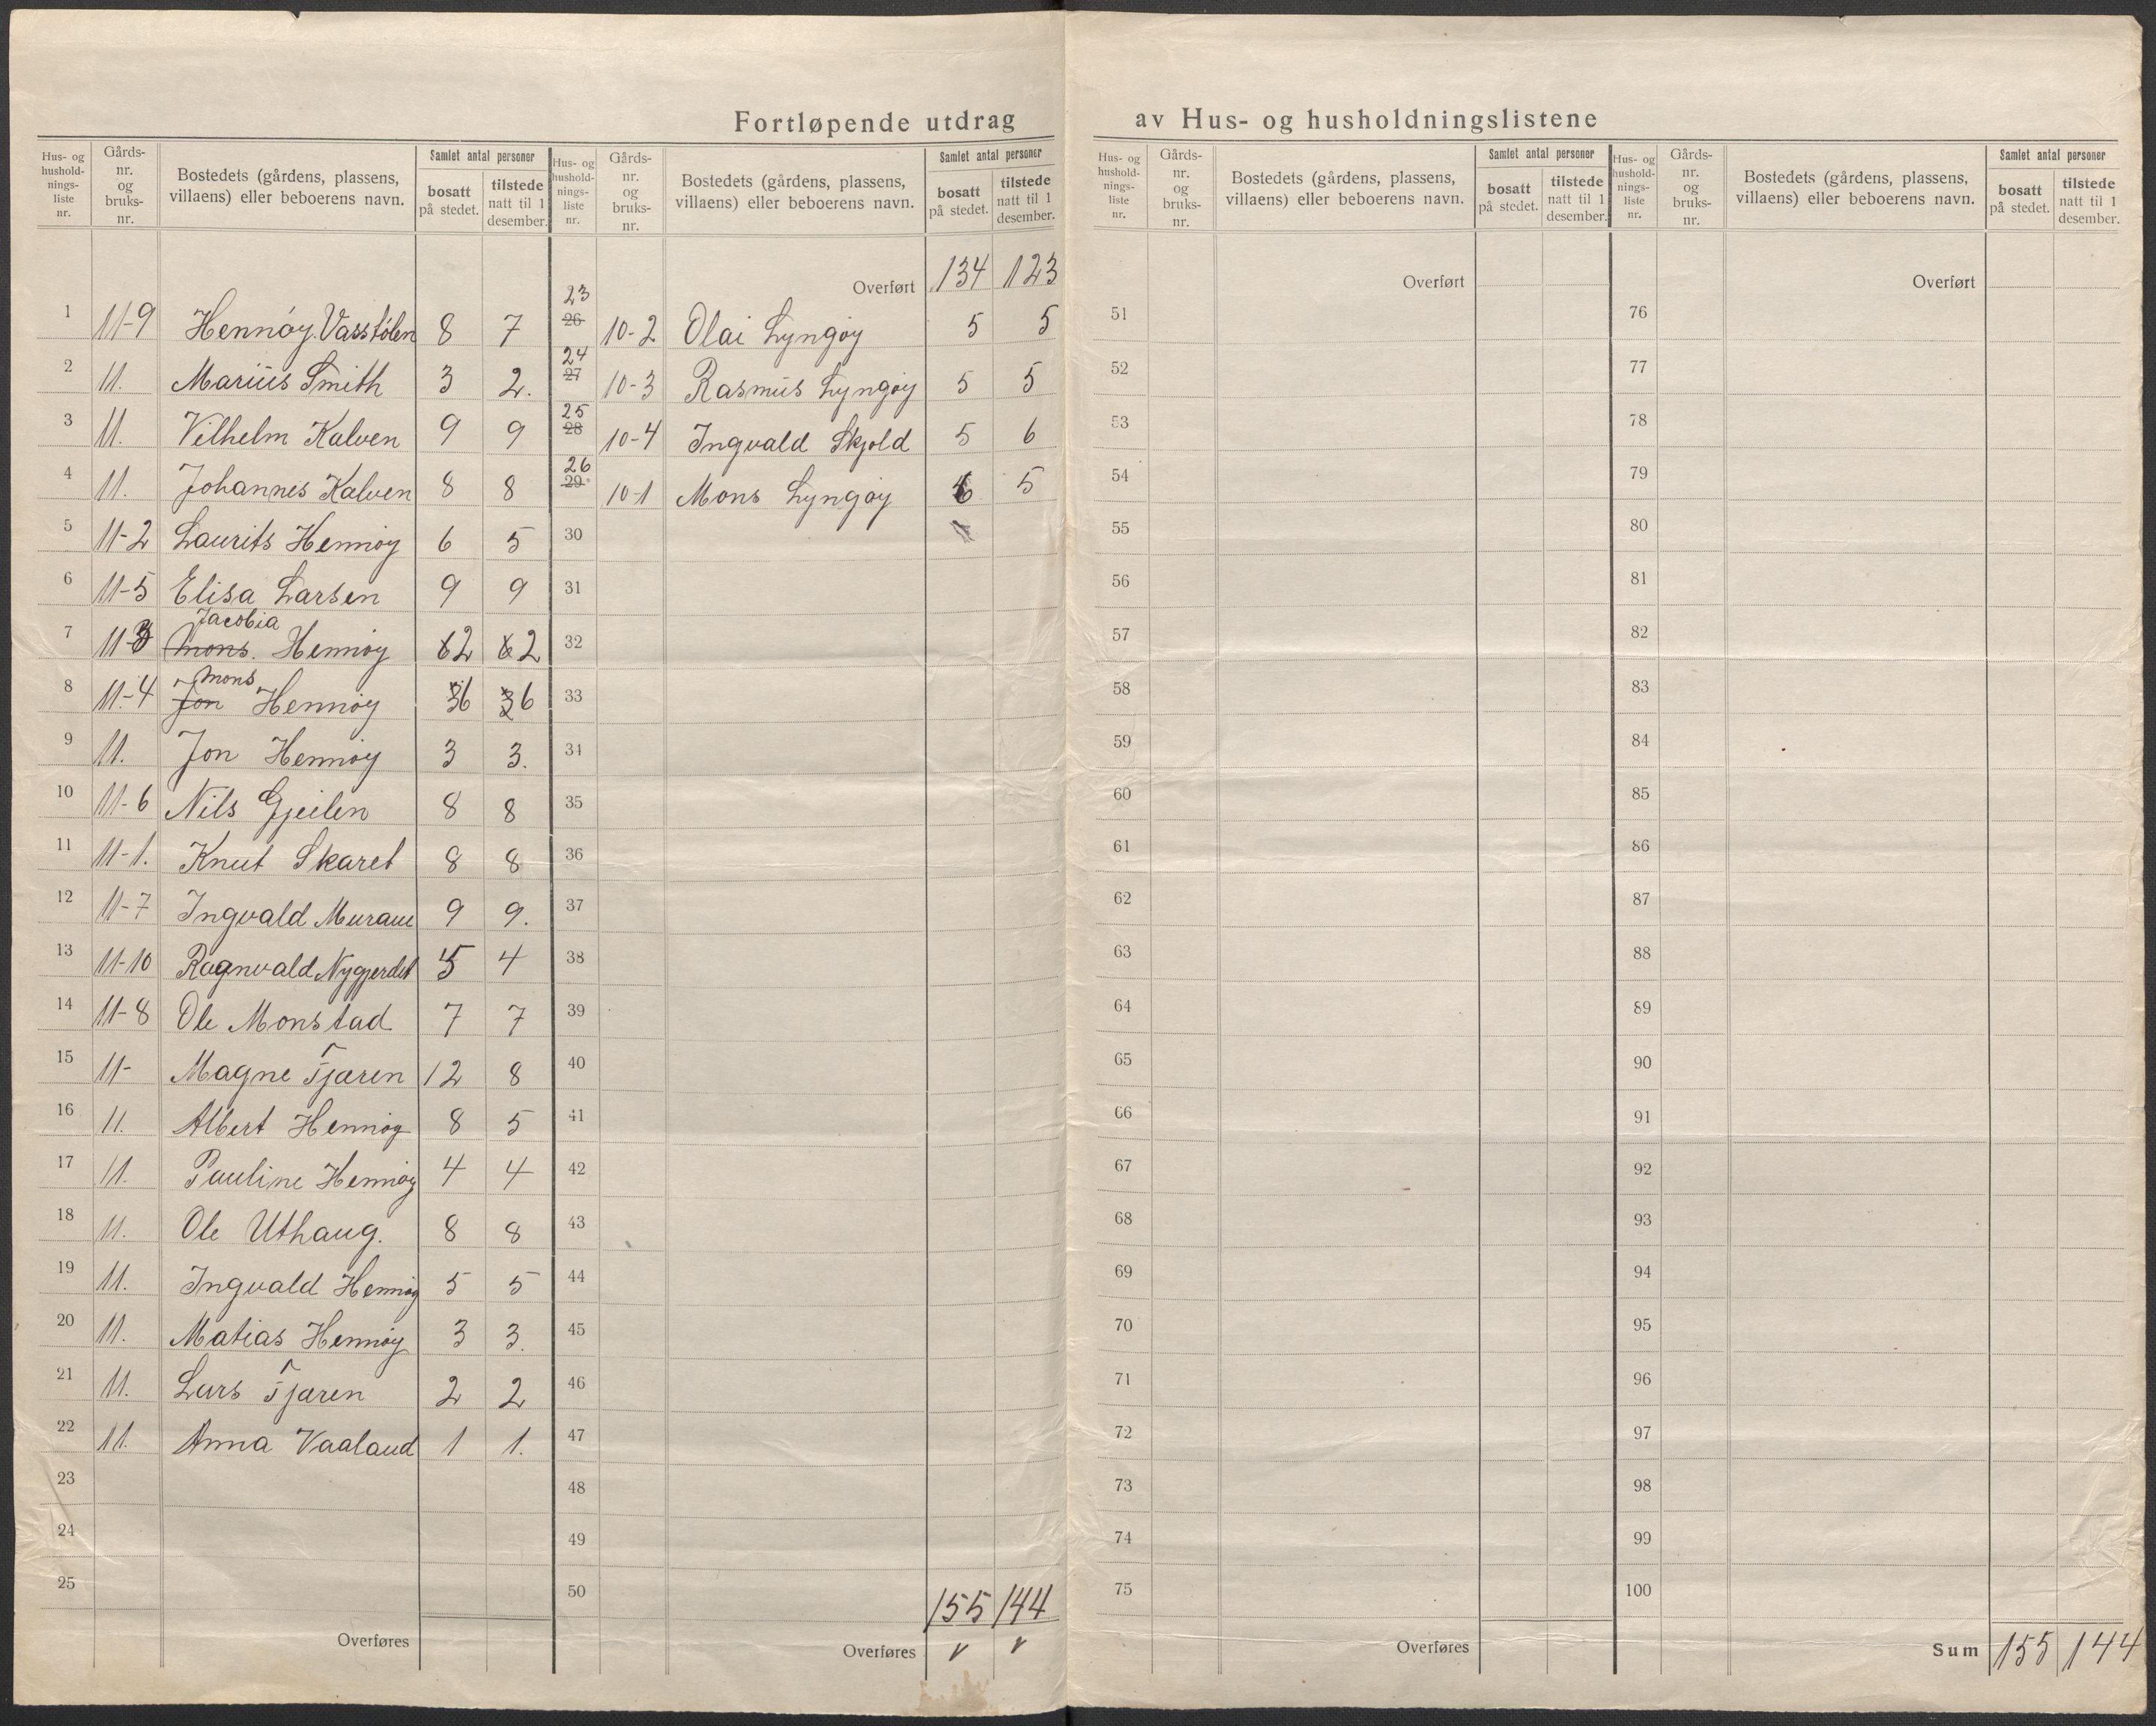 Fortløpende utdrag av Hus- og husholdningslistene
Hus- og husholdnings-liste nr. Gårds-nr. og bruks-nr. Bostedets (gårdens, plassens, villaens) eller beboerens navn. Samlet antal personer bosatt på stedet. tilstede natt til 1 desember.
1 11-9 Hennøy. Vasstølen 8 7
2 11. Marius Smith 3 2.
3 11. Vilhelm Kalven 9 9
4 11. Johannes Kalven 8 8
5 11-2 Laurits Hennøy 6 5
6 11-5 Elisa Larsen 9 9
Jacobia
7 11-3 Mons. Hennøy 62 62
Mons
8 11-4 Jon Hennøy 36 36
9 11. Jon Hennøy 3 3.
10 11-6 Nils Gjeilen 8 8
11 11-1. Knut Skaret 8 8
12 11-7 Ingvald Muraue 9 9.
13 11-10 Ragnvald Nygjerdet 5 4
14 11-8 Ole Monstad 7 7
15 11- Magne Tjæren 12 8
16 11. Albert Hennøy 8 5
17 11. Pauline Hennøy 4 4
18 11. Ole Uthaug. 8 8
19 11. Ingvald Hennøy 5 5
20 11. Matias Hennøy 3 3.
21 11. Lars Tjæren 2 2
22 11. Anna Vaaland 1 1.
23
24
25
Overføres
Hus- og husholdnings-liste nr. Gårds-nr. og bruks-nr. Bostedets (gårdens, plassens, villaens) eller beboerens navn. Samlet antal personer bosatt på stedet. tilstede natt til 1 desember.
Overført 134 123
23
26 10-2 Olai Lyngøy 5 5
24
27 10-3 Rasmus Lyngøy 5 5
25
28 10-4 Ingvald Skjold 5 6
26
29 10-1 Mons Lyngøy 6 5
30
31
32
33
34
35
36
37
38
39
40
41
42
43
44
45
46
47
48
49
50
155 144
Overføres v v
Hus- og husholdnings-liste nr. Gårds-nr. og bruks-nr. Bostedets (gårdens, plassens, villaens) eller beboerens navn. Samlet antal personer bosatt på stedet. tilstede natt til 1 desember.
Overført
51
52
53
54
55
56
57
58
59
60
61
62
63
64
65
66
67
68
69
70
71
72
73
74
75
Overføres
Hus- og husholdnings-liste nr. Gårds-nr. og bruks-nr. Bostedets (gårdens, plassens, villaens) eller beboerens navn. Samlet antal personer bosatt på stedet. tilstede natt til 1 desember.
Overført
76
77
78
79
80
81
82
83
84
85
86
87
88
89
90
91
92
93
94
95
96
97
98
99
100
Sum 155 144